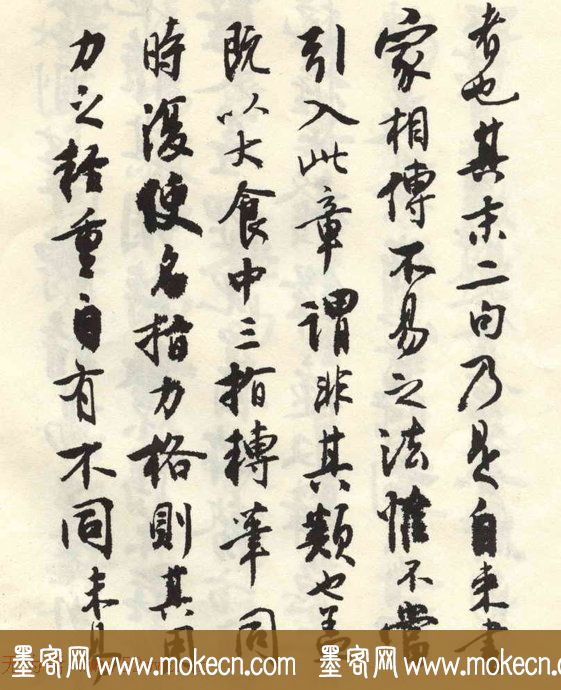 者也其末二句乃是自来書
家相傳不易之法惟不當
引入此章謂非其類也盖
既以大食中三指摶筆同
時復使名指力格則其用
力之輕重自有不同未易
墨客网 www.mokecn.com 墨客网 www.mokecn.com